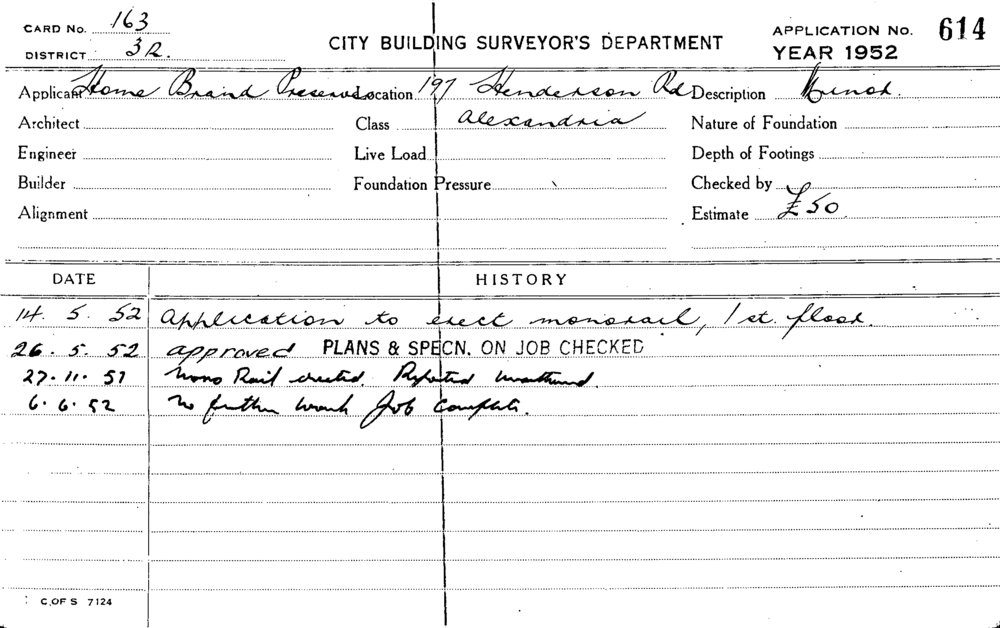 CARD No. 163
DISTRICT 32.
CITY BUILDING SURVEYOR'S DEPARTMENT
APPLICATION No. 614
YEAR 1952
Applicant Home Brand Preserves Location 197 Henderson Rd Description Minor.
Architect Class Alexandria Nature of Foundation
Engineer Live Load Depth of Footings
Builder Foundation Pressure Checked by
Alignment Estimate £50
DATE HISTORY
14. 5. 52 Application to erect monorail, 1st. floor.
26. 5. 52 approved PLANS & SPECN. ON JOB CHECKED
27.11.51 Mono Rail erected. Reported unauthorised.
6.6.52 No further work Job Complete.
C.OF S 7124